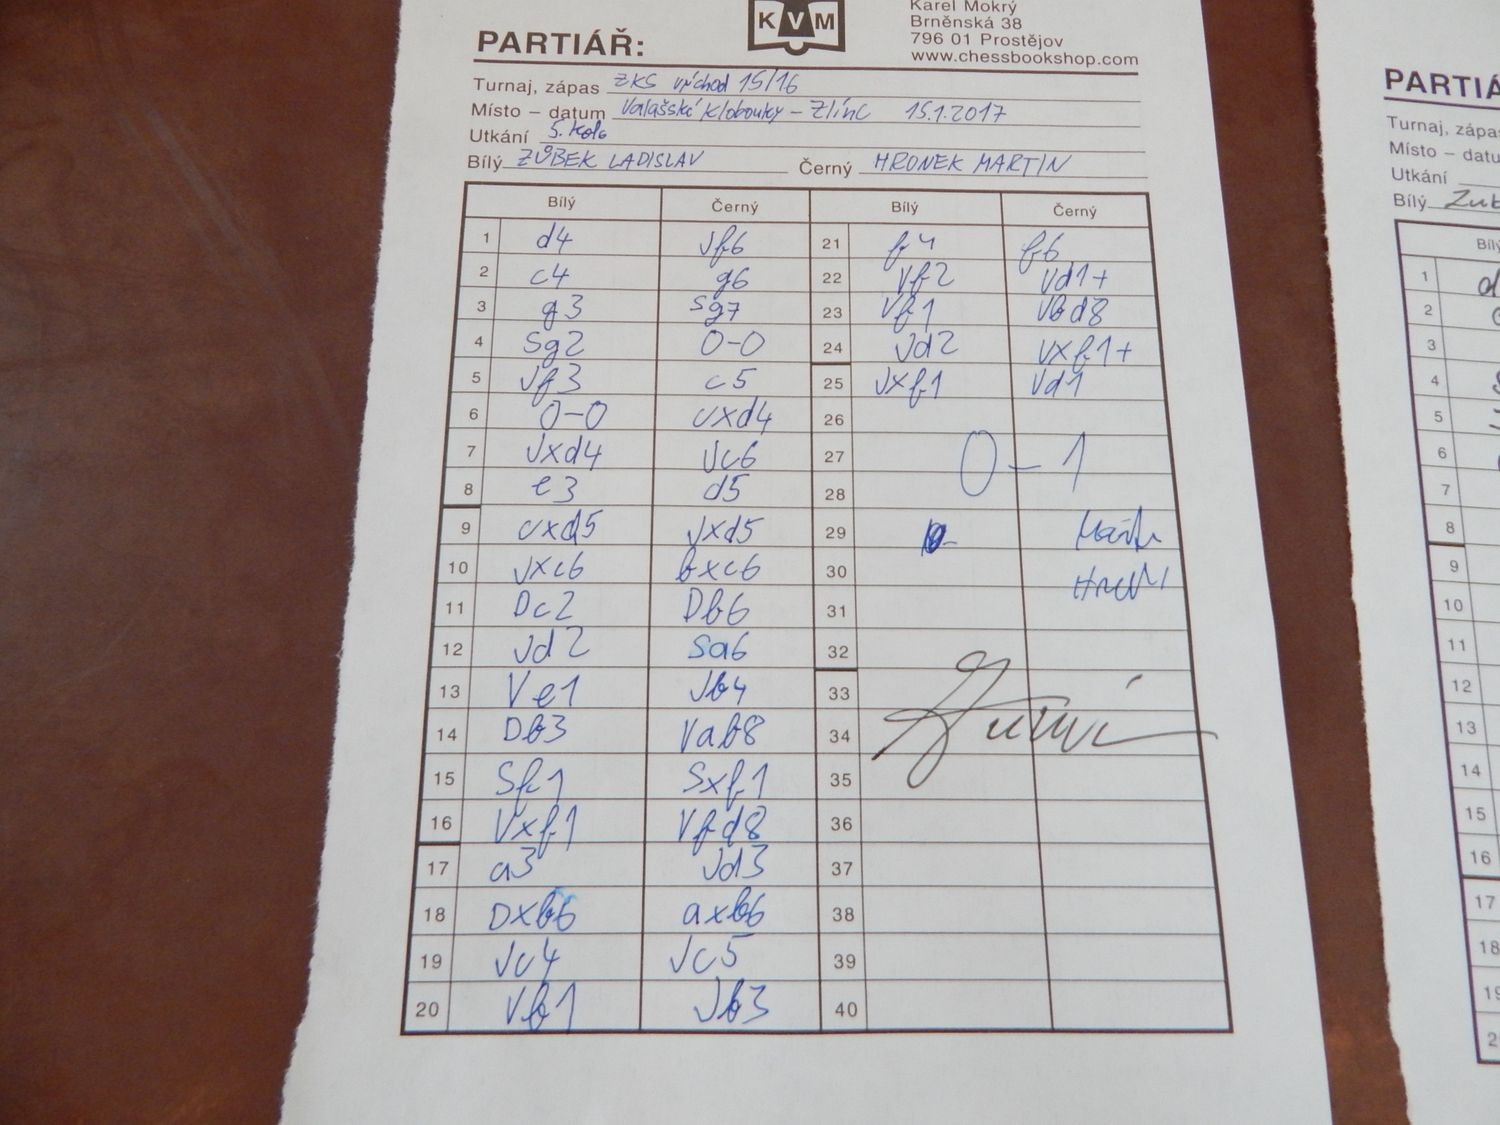 Karel Mokrý
PARTIÁŘ: KVM Brněnská 38
796 01 Prostějov
www.chessbookshop.com
Turnaj, zápas ZKS východ 15/16
Místo – datum Valašské Klobouky – Zlínc 15.1.2017
Utkání 5. kolo
Bílý ZŮBEK LADISLAV Černý HRONEK MARTIN
Bílý Černý Bílý Černý
1 d4 Jf6 21 f4 f6
2 c4 g6 22 Vf2 Vd1+
3 g3 Sg7 23 Vf1 Vbd8
4 Sg2 0-0 24 Jd2 Vxf1+
5 Jf3 c5 25 Jxf1 Vd1
6 0-0 cxd4 26
7 Jxd4 Jc6 27 0 – 1
8 e3 d5 28
9 cxd5 Jxd5 29
10 Jxc6 bxc6 30
11 Dc2 Db6 31
12 Jd2 Sa6 32
13 Ve1 Jb4 33
14 Db3 Vab8 34
15 Sf1 Sxf1 35
16 Vxf1 Vfd8 36
17 a3 Jd3 37
18 Dxb6 axb6 38
19 Jc4 Jc5 39
20 Vb1 Jb3 40
PARTIÁ
Turnaj, zápas
Místo – datu
Utkání
Bílý Zub
Bílý
1 d
2
3
4
5
6
7
8
9
10
11
12
13
14
15
16
17
18